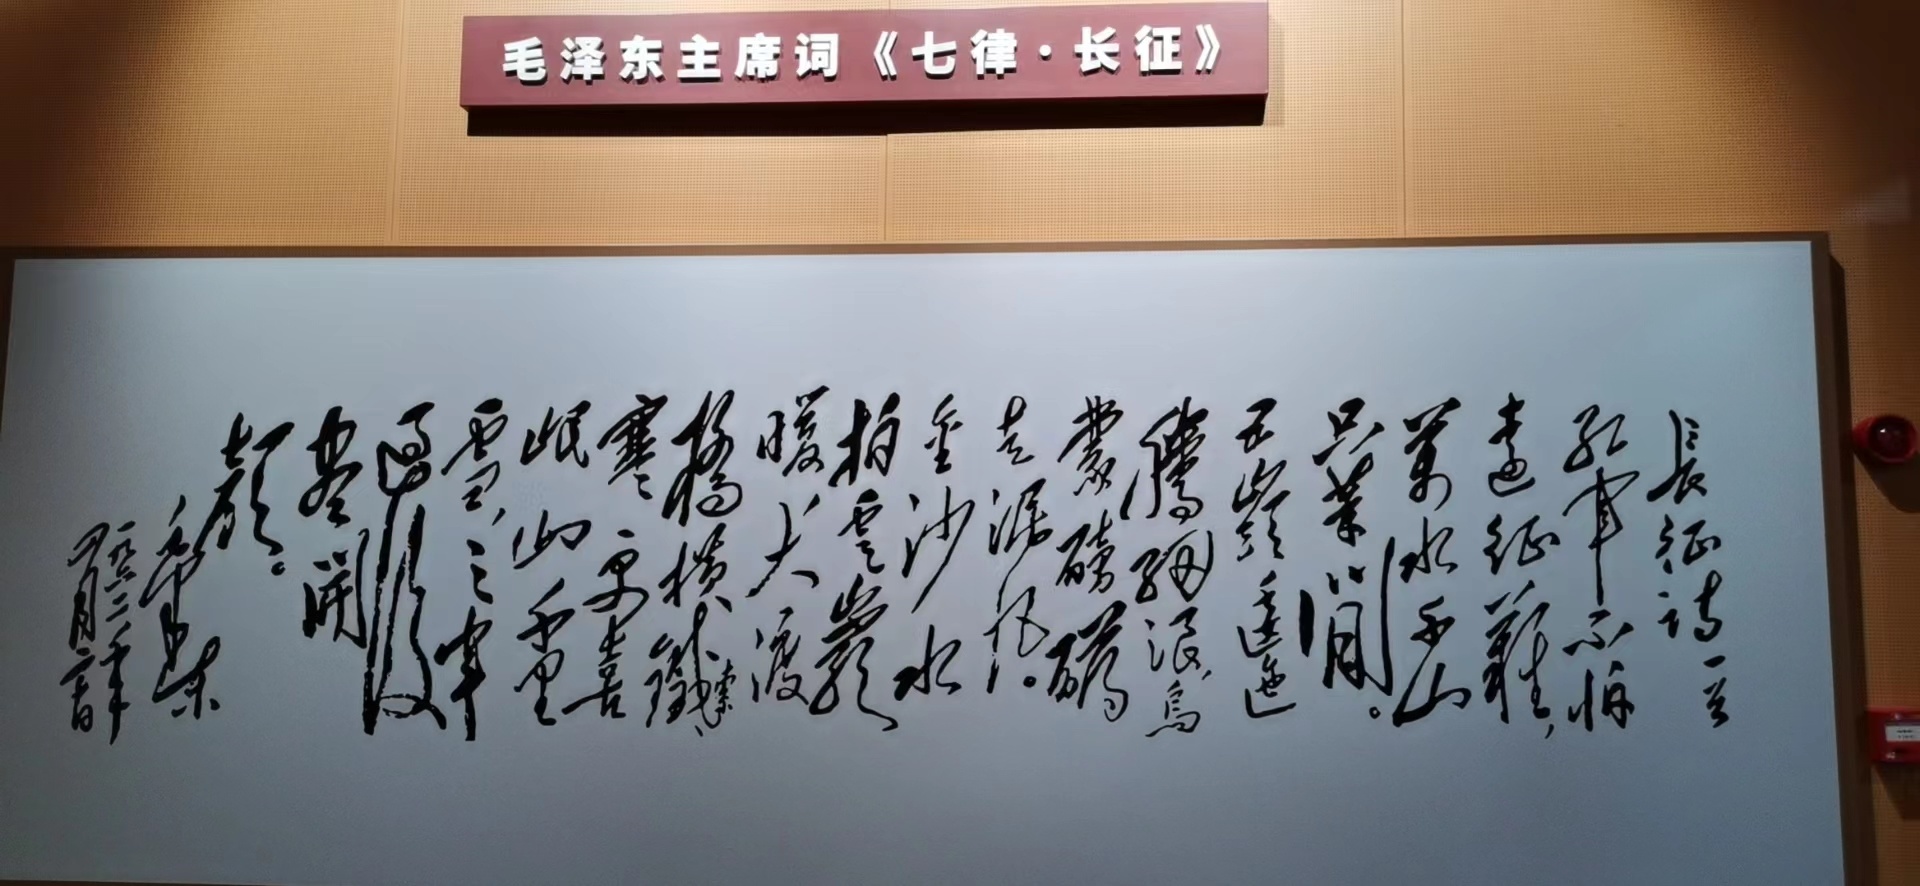 毛泽东主席词《七律·长征》
長征詩一首
紅軍不怕
遠征難，
萬水千山
只等閒。
五嶺逶迤
騰細浪，烏
蒙磅礴
走泥丸。
金沙水
拍雲巖
暖大渡
橋橫鐵索
寒更喜
岷山千里
雪，三軍
過後
盡開
顏。
毛澤東
一九六二年
四月二十日